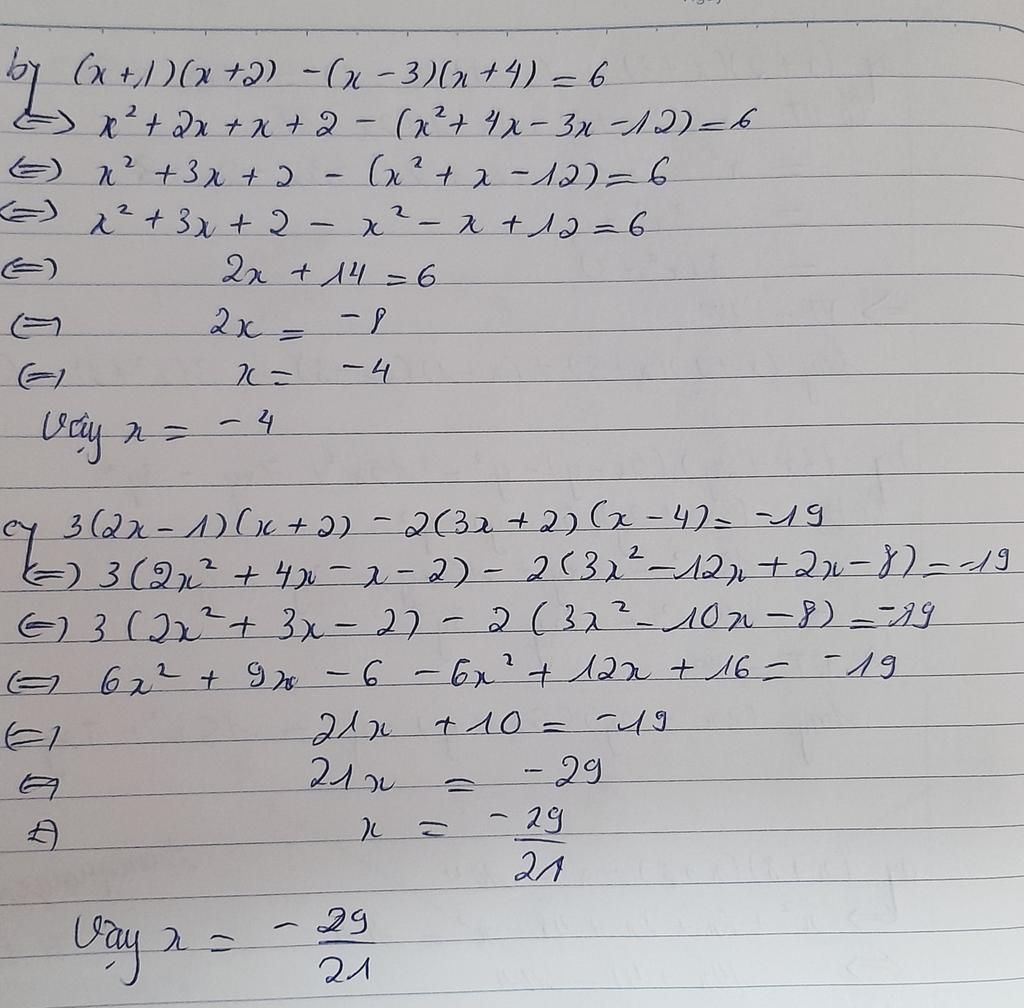 b) (x+1)(x+2) - (x-3)(x+4) = 6
⇔ x² + 2x + x + 2 - (x² + 4x - 3x - 12) = 6
⇔ x² + 3x + 2 - (x² + x - 12) = 6
⇔ x² + 3x + 2 - x² - x + 12 = 6
⇔ 2x + 14 = 6
⇔ 2x = -8
⇔ x = -4
Vậy x = -4
c) 3(2x-1)(x+2) - 2(3x+2)(x-4) = -19
⇔ 3(2x² + 4x - x - 2) - 2(3x² - 12x + 2x - 8) = -19
⇔ 3(2x² + 3x - 2) - 2(3x² - 10x - 8) = -19
⇔ 6x² + 9x - 6 - 6x² + 12x + 16 = -19
⇔ 21x + 10 = -19
⇔ 21x = -29
⇔ x = -29/21
Vậy x = -29/21